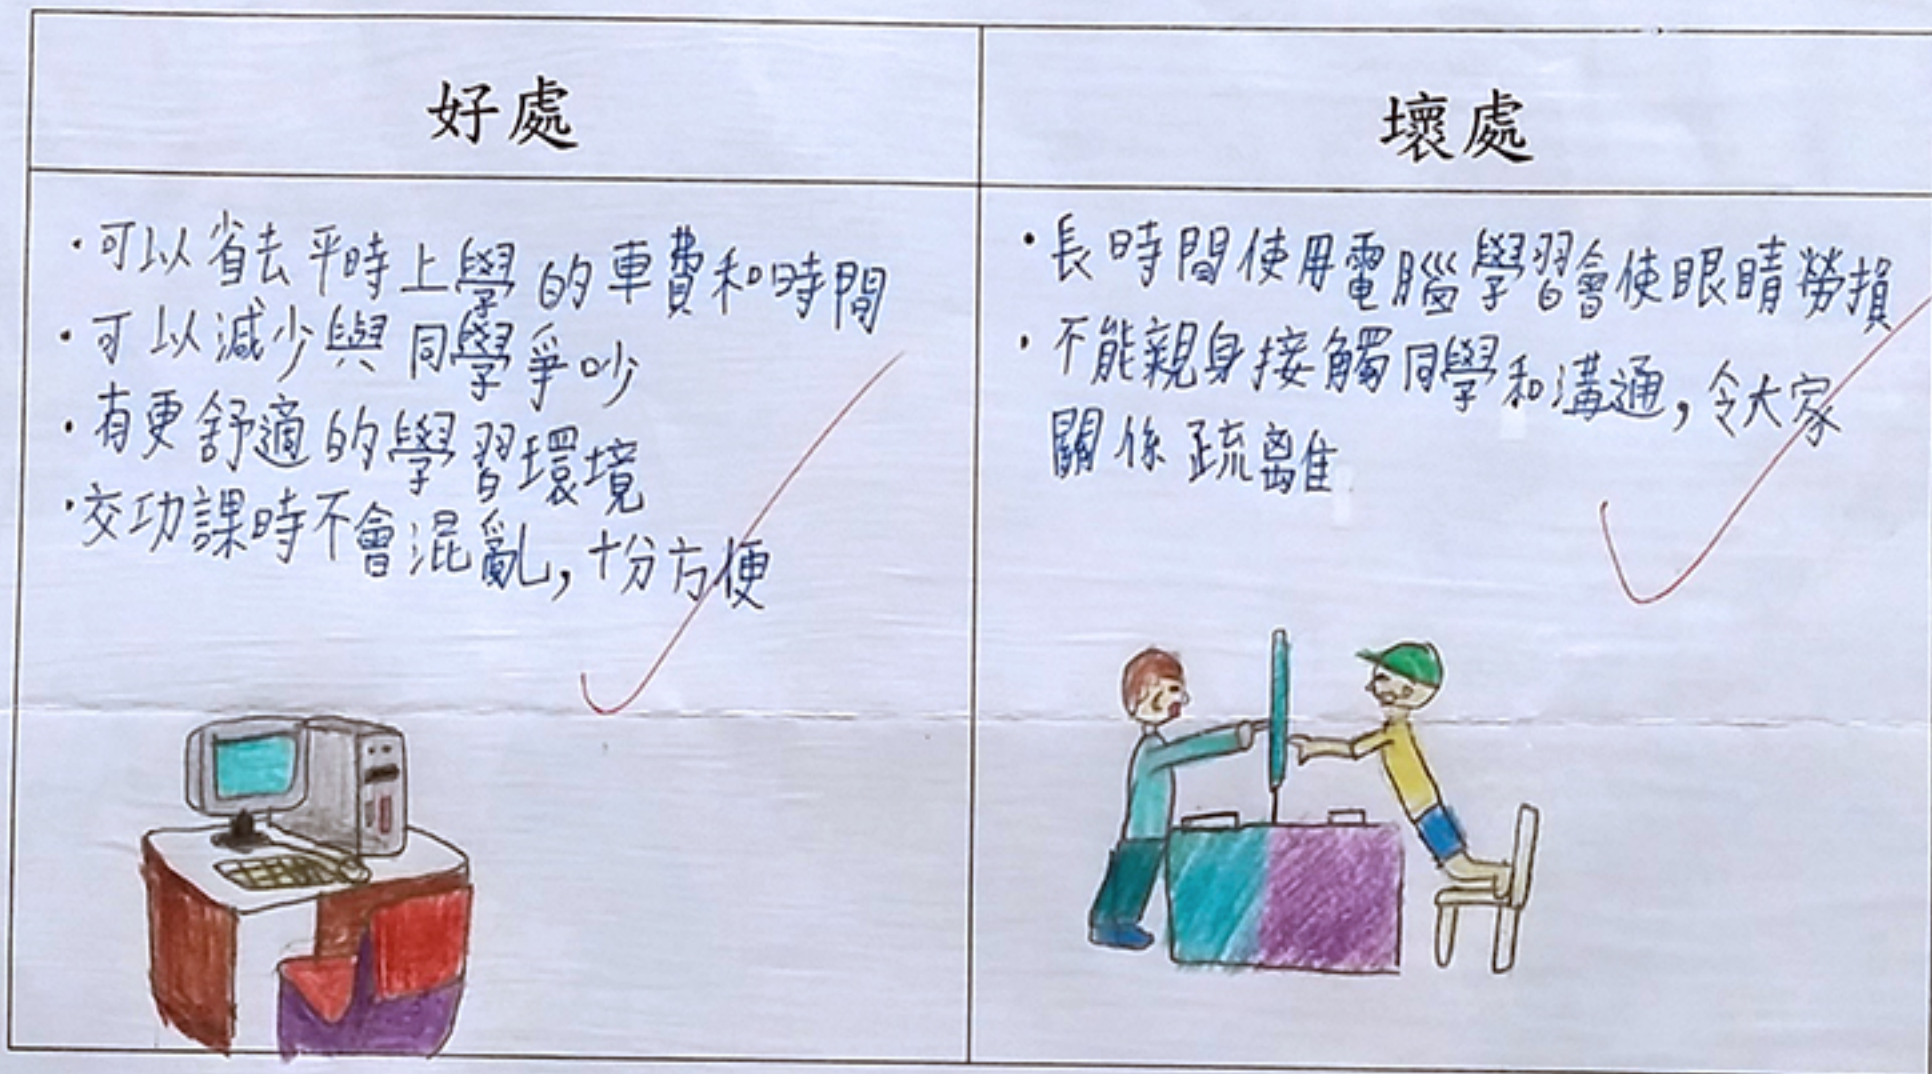 好處
·可以省去平時上學的車費和時間
·可以減少與同學爭吵
·有更舒適的學習環境
·交功課時不會混亂，十分方便
壞處
·長時間使用電腦學習會使眼睛勞損
·不能親身接觸同學和溝通，令大家
關係疏離